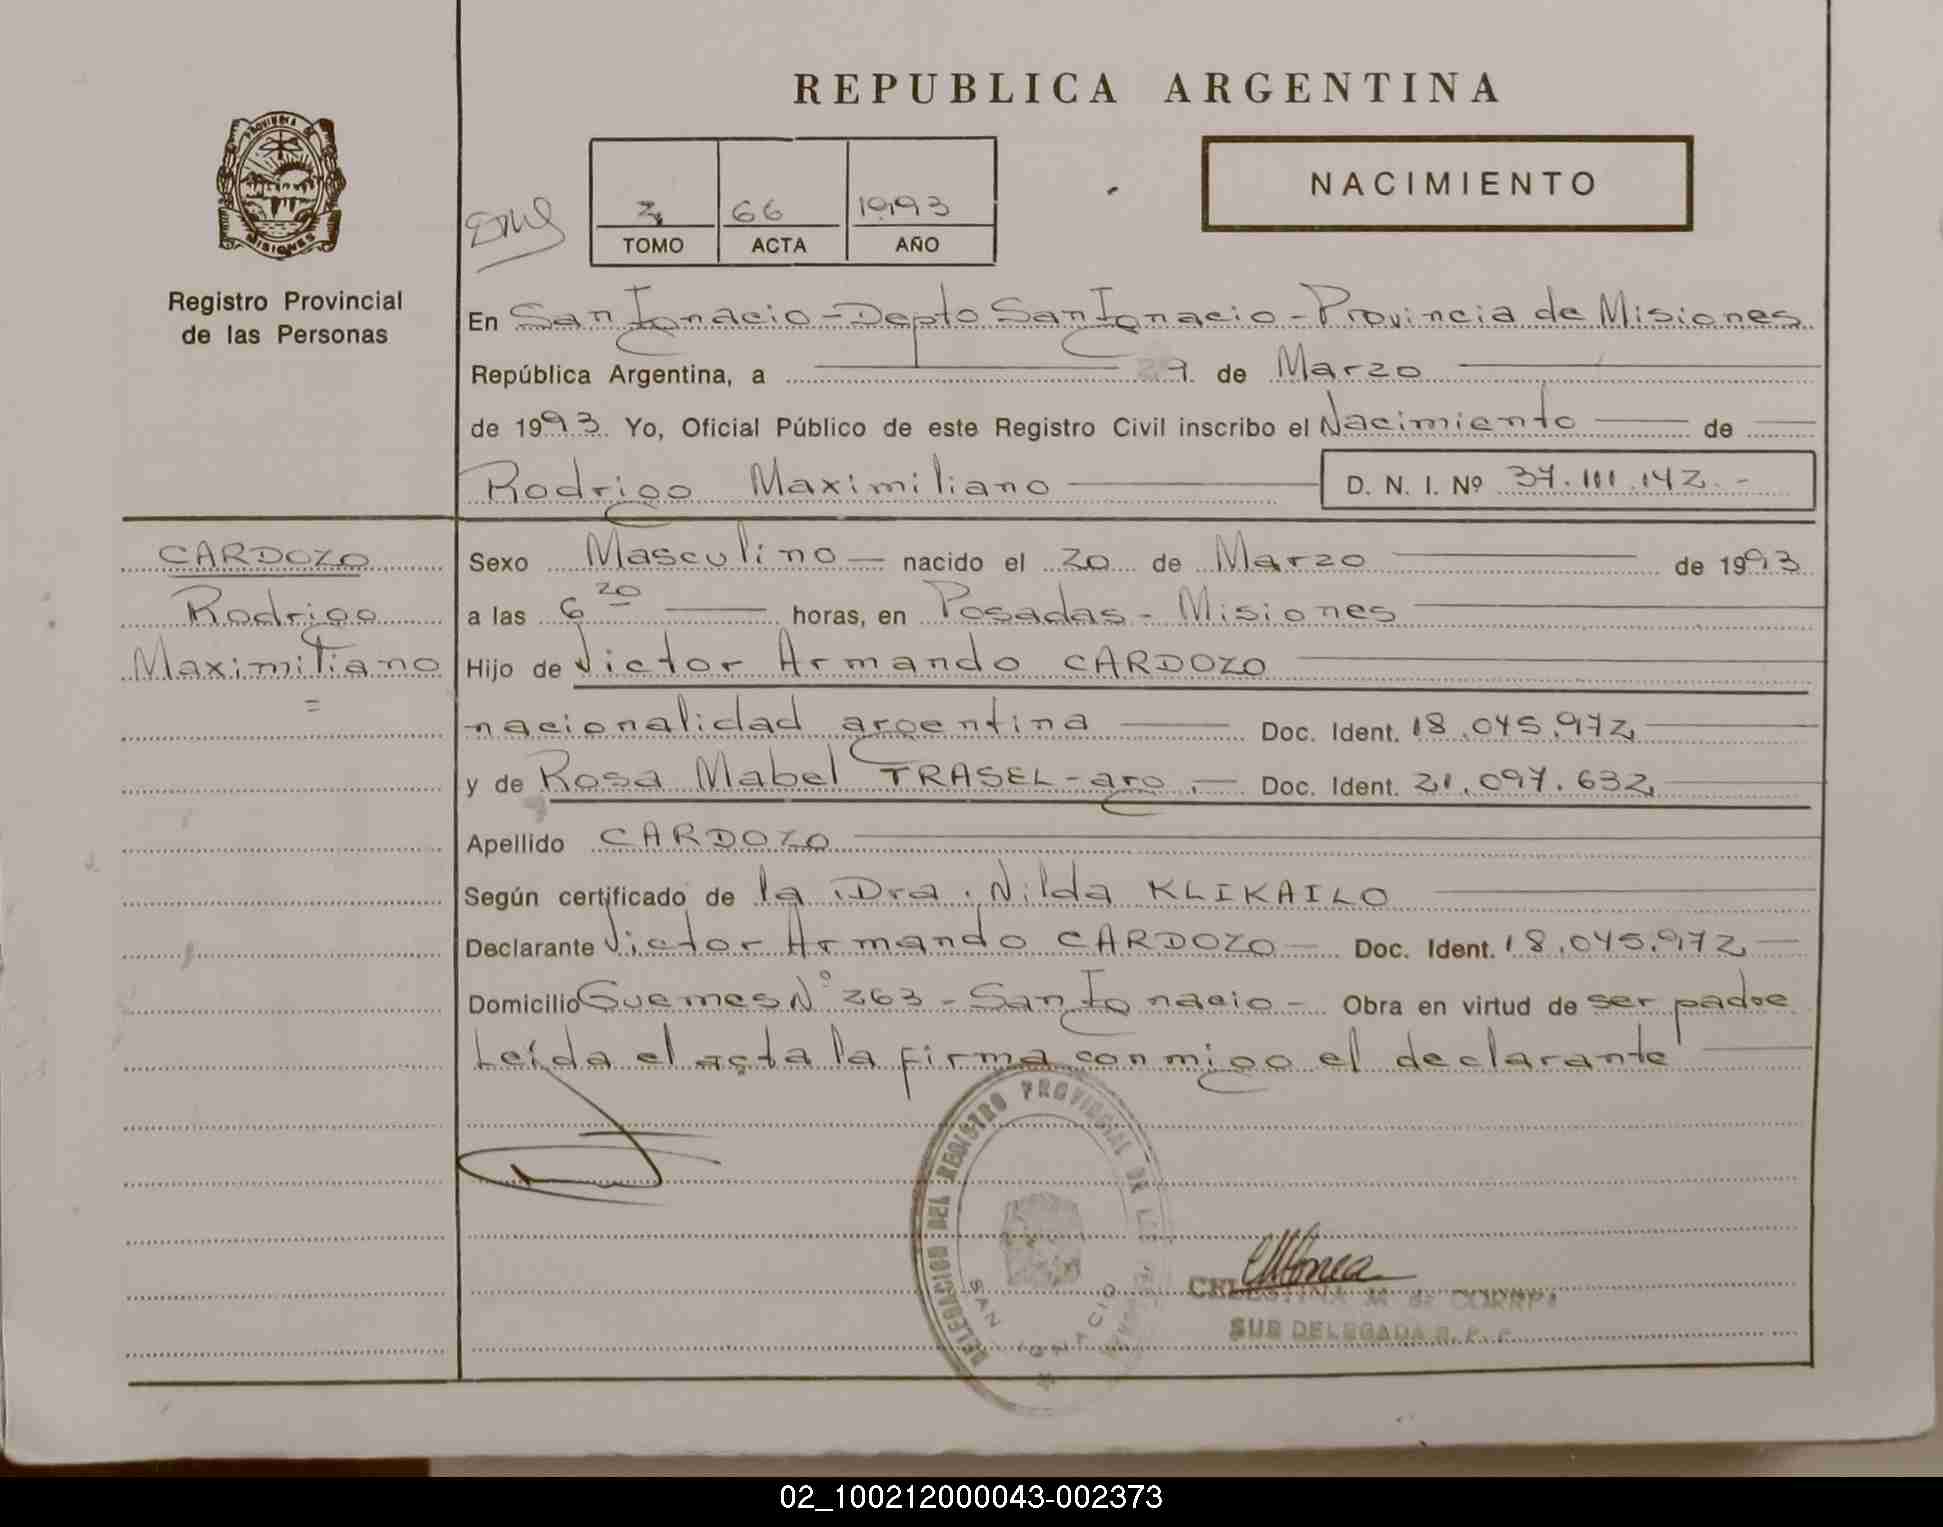 REPUBLICA ARGENTINA
PROVINCIA DE
MISIONES
Registro Provincial
de las Personas
66 1993
TOMO ACTA AÑO
NACIMIENTO
En San Ignacio - Depto San Ignacio - Provincia de Misiones
República Argentina, a 29 de Marzo
de 1993 Yo, Oficial Público de este Registro Civil inscribo el Nacimiento de
Rodrigo Maximiliano D. N. I. Nº 37.111.142.-
CARDOZO
Rodrigo
Maximiliano
=
Sexo Masculino nacido el 20 de Marzo de 1993
a las 6 20 horas, en Posadas - Misiones
Hijo de Victor Armando CARDOZO
nacionalidad argentina Doc. Ident. 18.045.972
y de Rosa Mabel TRASEL - arg. Doc. Ident. 21.097.632
Apellido CARDOZO
Según certificado de la Dra. Nilda KLIKAILO
Declarante Victor Armando CARDOZO Doc. Ident. 18.045.972
Domicilio Guemes Nº 263 - San Ignacio - Obra en virtud de ser padre
Leída el acta la firma conmigo el declarante
DELEGACION DEL REGISTRO PROVINCIAL DE LAS
SAN IGNACIO
CELESTINA M. de
SUB DELEGADA R. P. P.
02_100212000043-002373